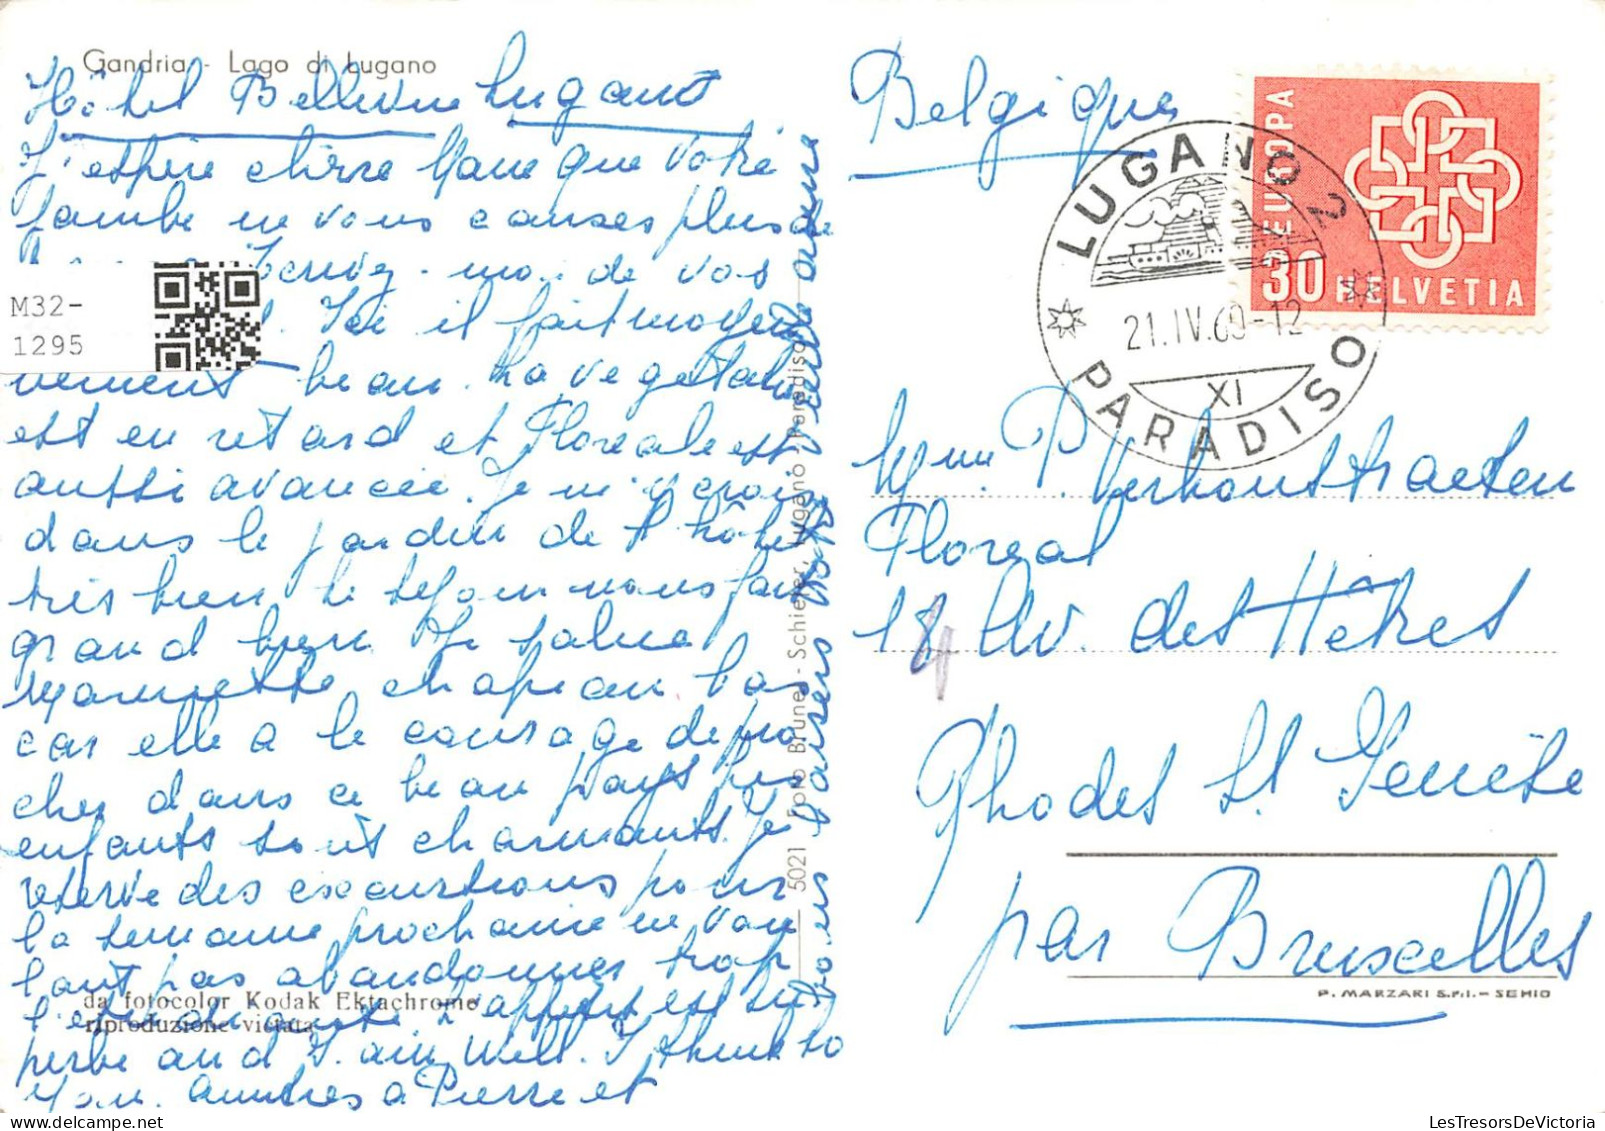 Gandria - Lago di Lugano
Hôtel Bellevue Lugano
J'espère chère Mame que votre
jambe ne vous causes plus de
Ecrivez-moi de vos
Ici il fait moyen
nement beau. La vegetation
est en retard et Floreale est
aussi avancée. Je m'y crois
dans le jardin de l'hôtel
très bien le sejour nous fait
grand bien Je salue
Mannette, chapeau bas
car elle a le courage de pro
cher dans ce beau pays les
enfants sont charmants. Je
reserve des excurtions pour
la semaine prochaine ne vou
lant pas abandonner trop
l'etudiante l'appetit est su
perbe and I am well. I think to
you. amitiés a Pierre et
da fotocolor Kodak Ektachrome
riproduzione vietata
5021 Foto Brunel - Schiefer, Lugano Paradiso
bons baisers votre
M32-
1295
Belgique
LUGANO 2
21.IV.60-12
XI
PARADISO
EUROPA
30 HELVETIA
Mme P. Verhoustraeten
Floreal
18 Av. des Hêtres
4
Rhodes St. Genèse
par Bruxelles
P. MARZARI S.r.l. - SCHIO
LesTresorsDeVictoria.com